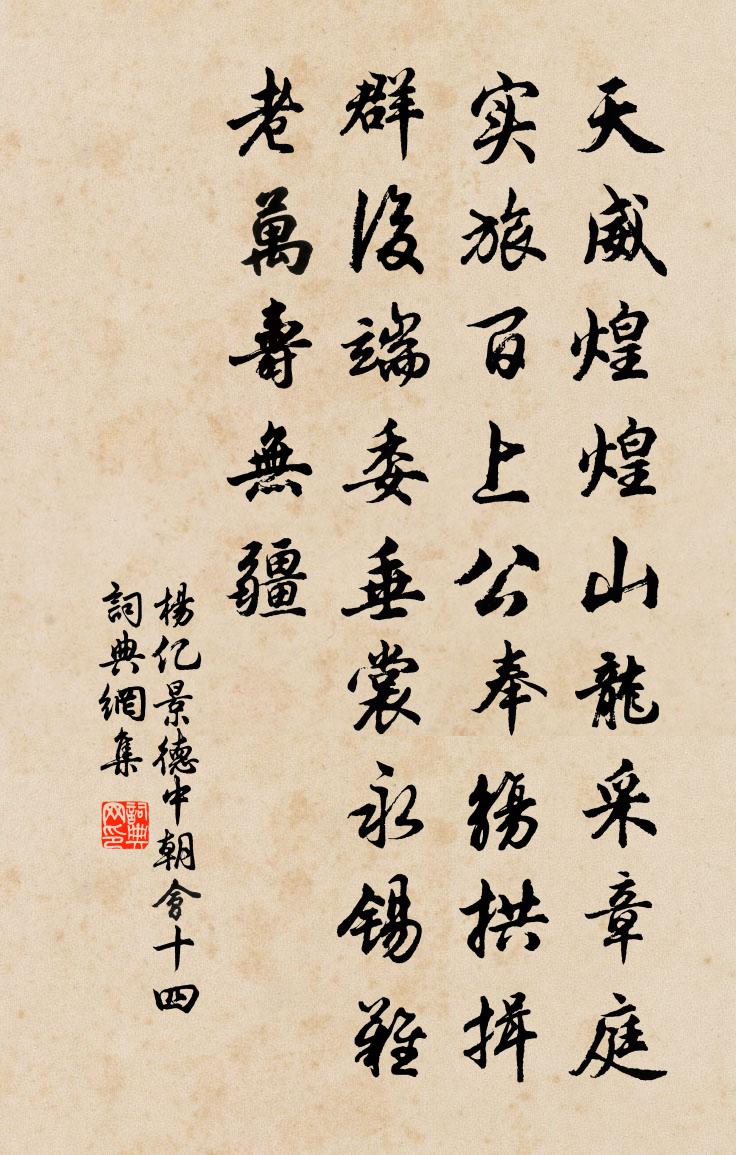 天威煌煌山龍采章庭
实旅百上公奉觴拱揖
群後端委垂裳永錫難
老萬壽無疆
楊亿景德中朝會十四
詞典網集
詞典网印